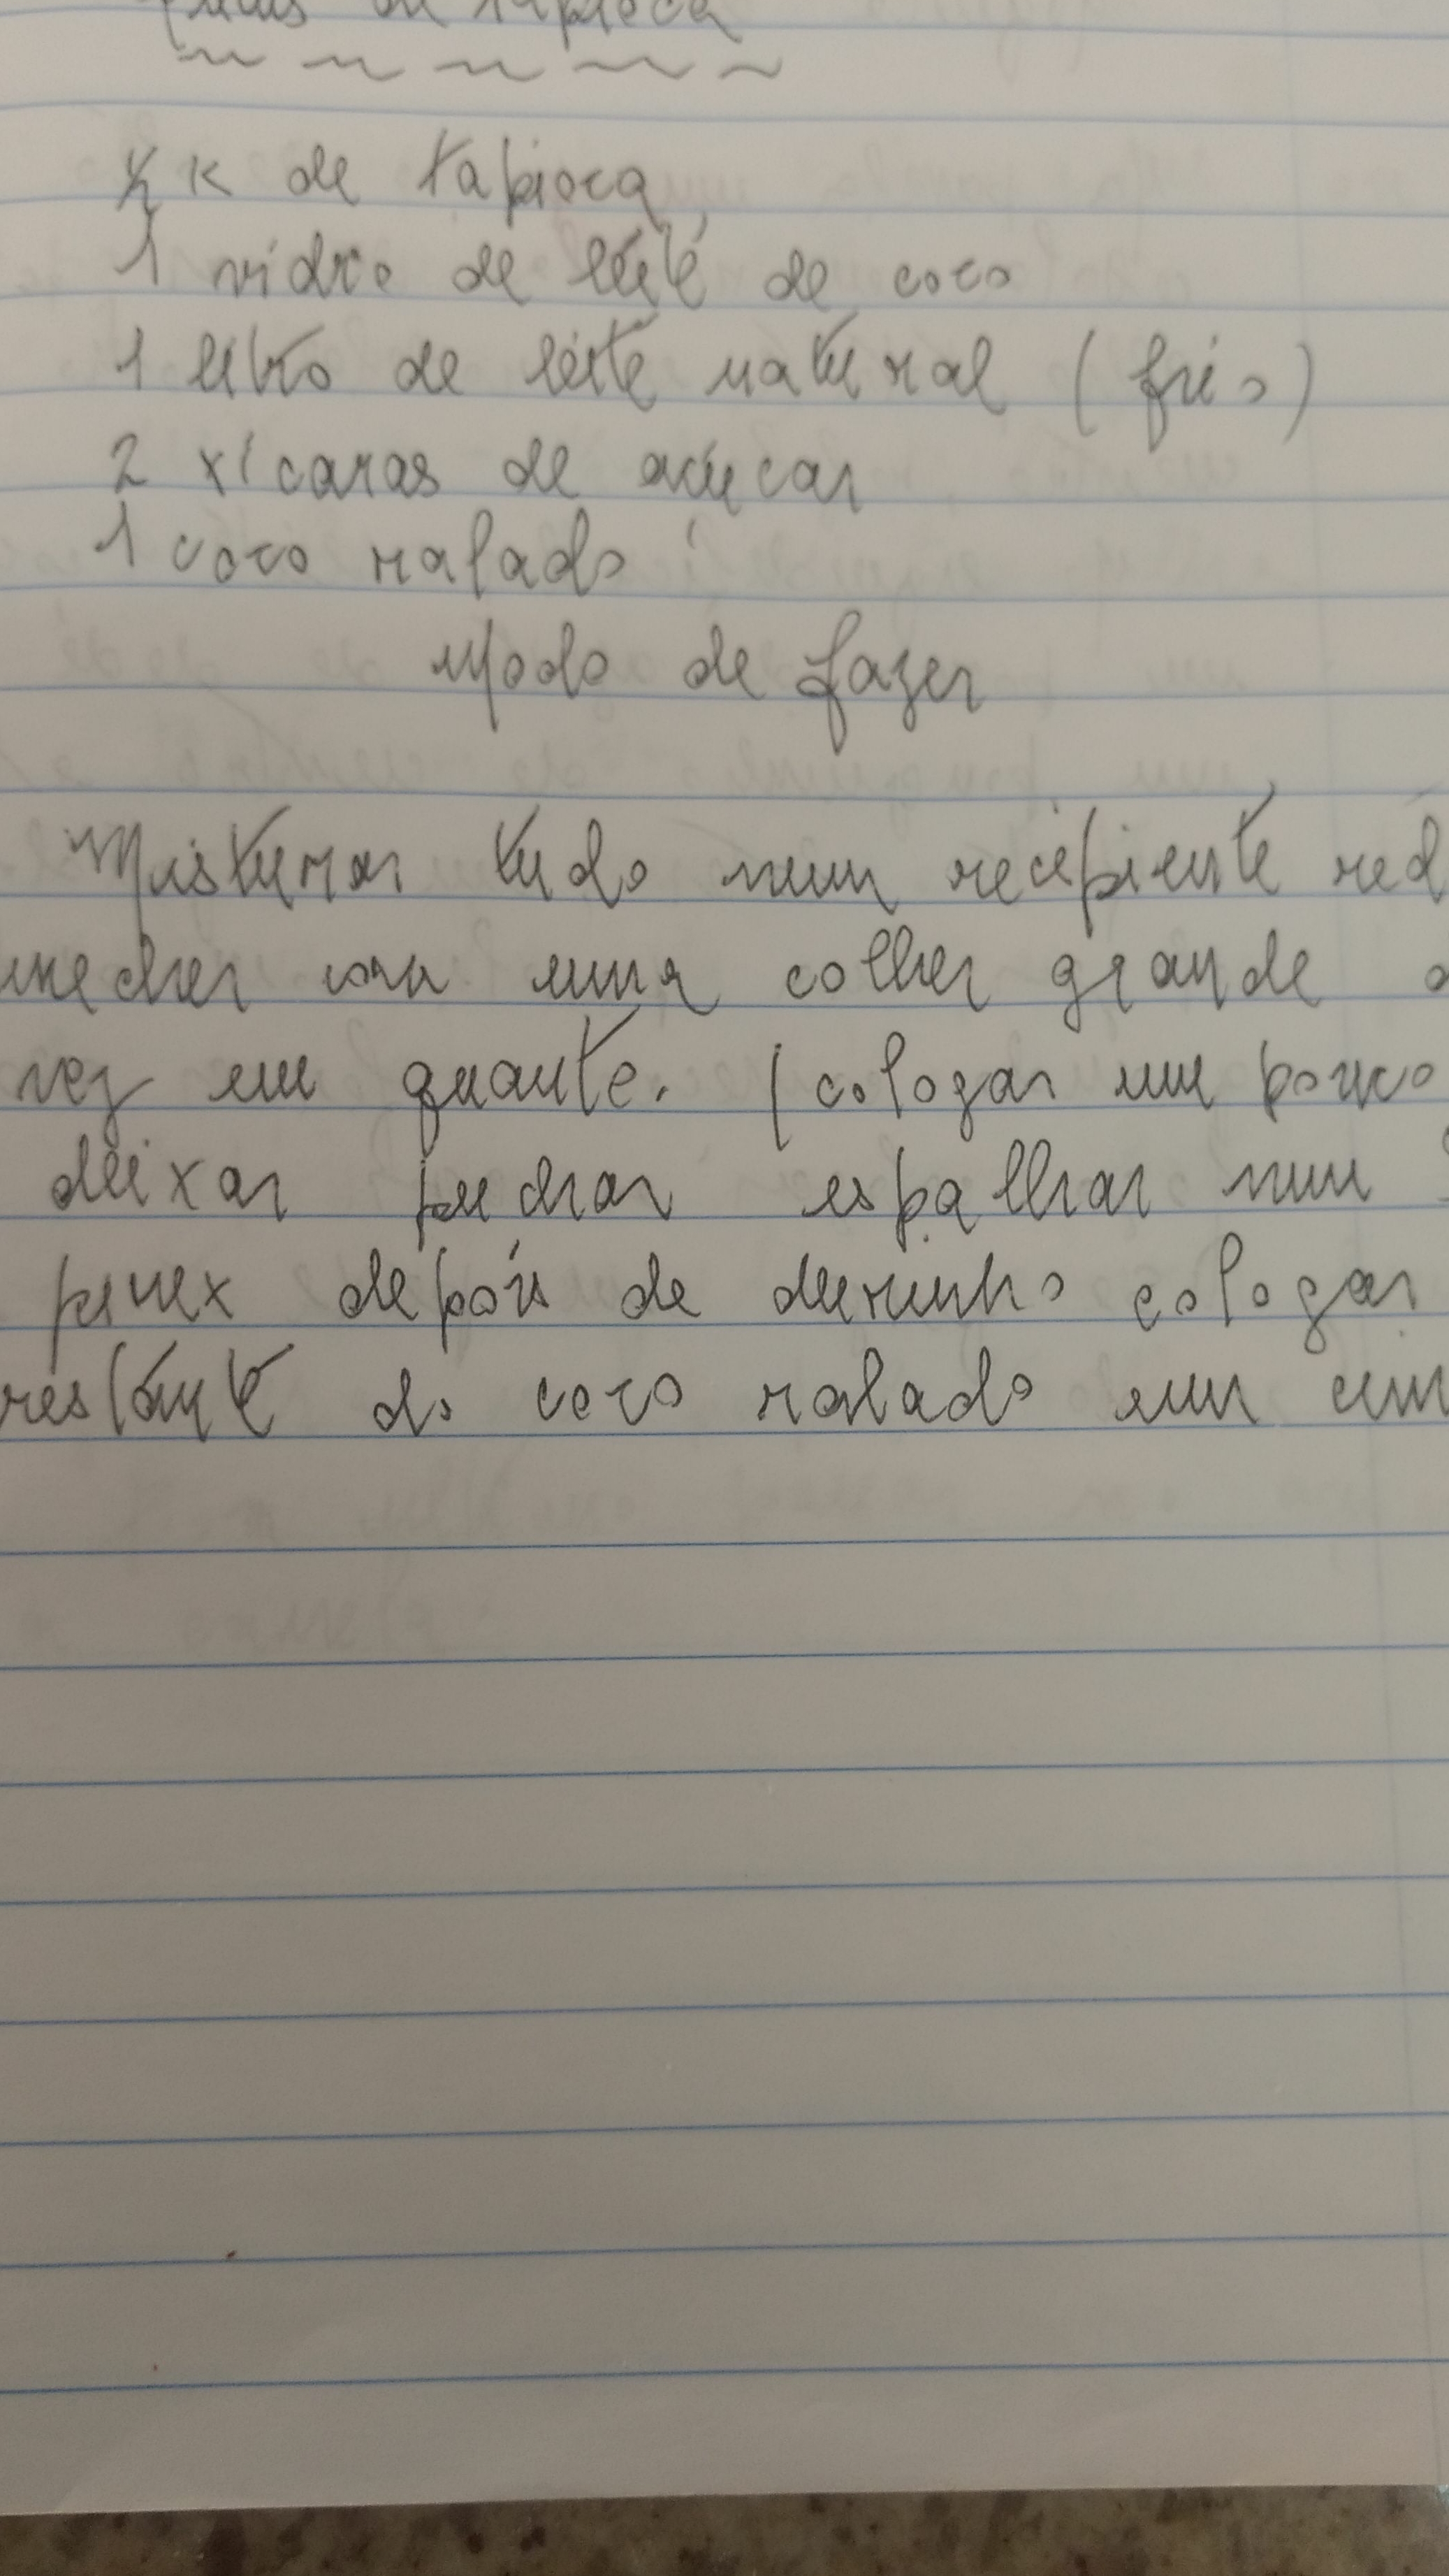 de tapioca
½ K de tapioca
1 vidro de leite de coco
1 litro de leite natural (frio)
2 xícaras de açúcar
1 coco ralado
Modo de fazer
Misturar tudo num recipiente red
mecher com uma colher grande
vez em quante. (cologar um pouco
deixar pedrar espalhar num
pirex depois de durinho cologar
restante do coco ralado em cim